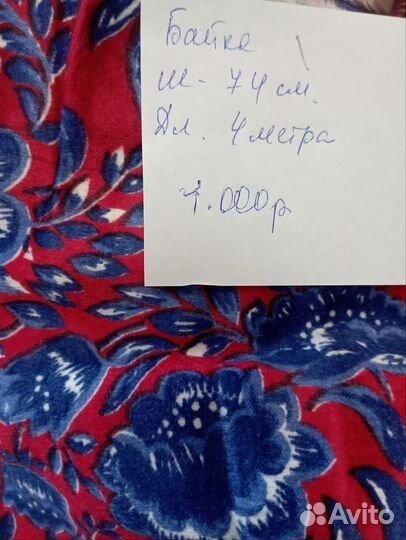 Байка
ш - 74 см.
Дл. 4 метра
1.000р
Avito